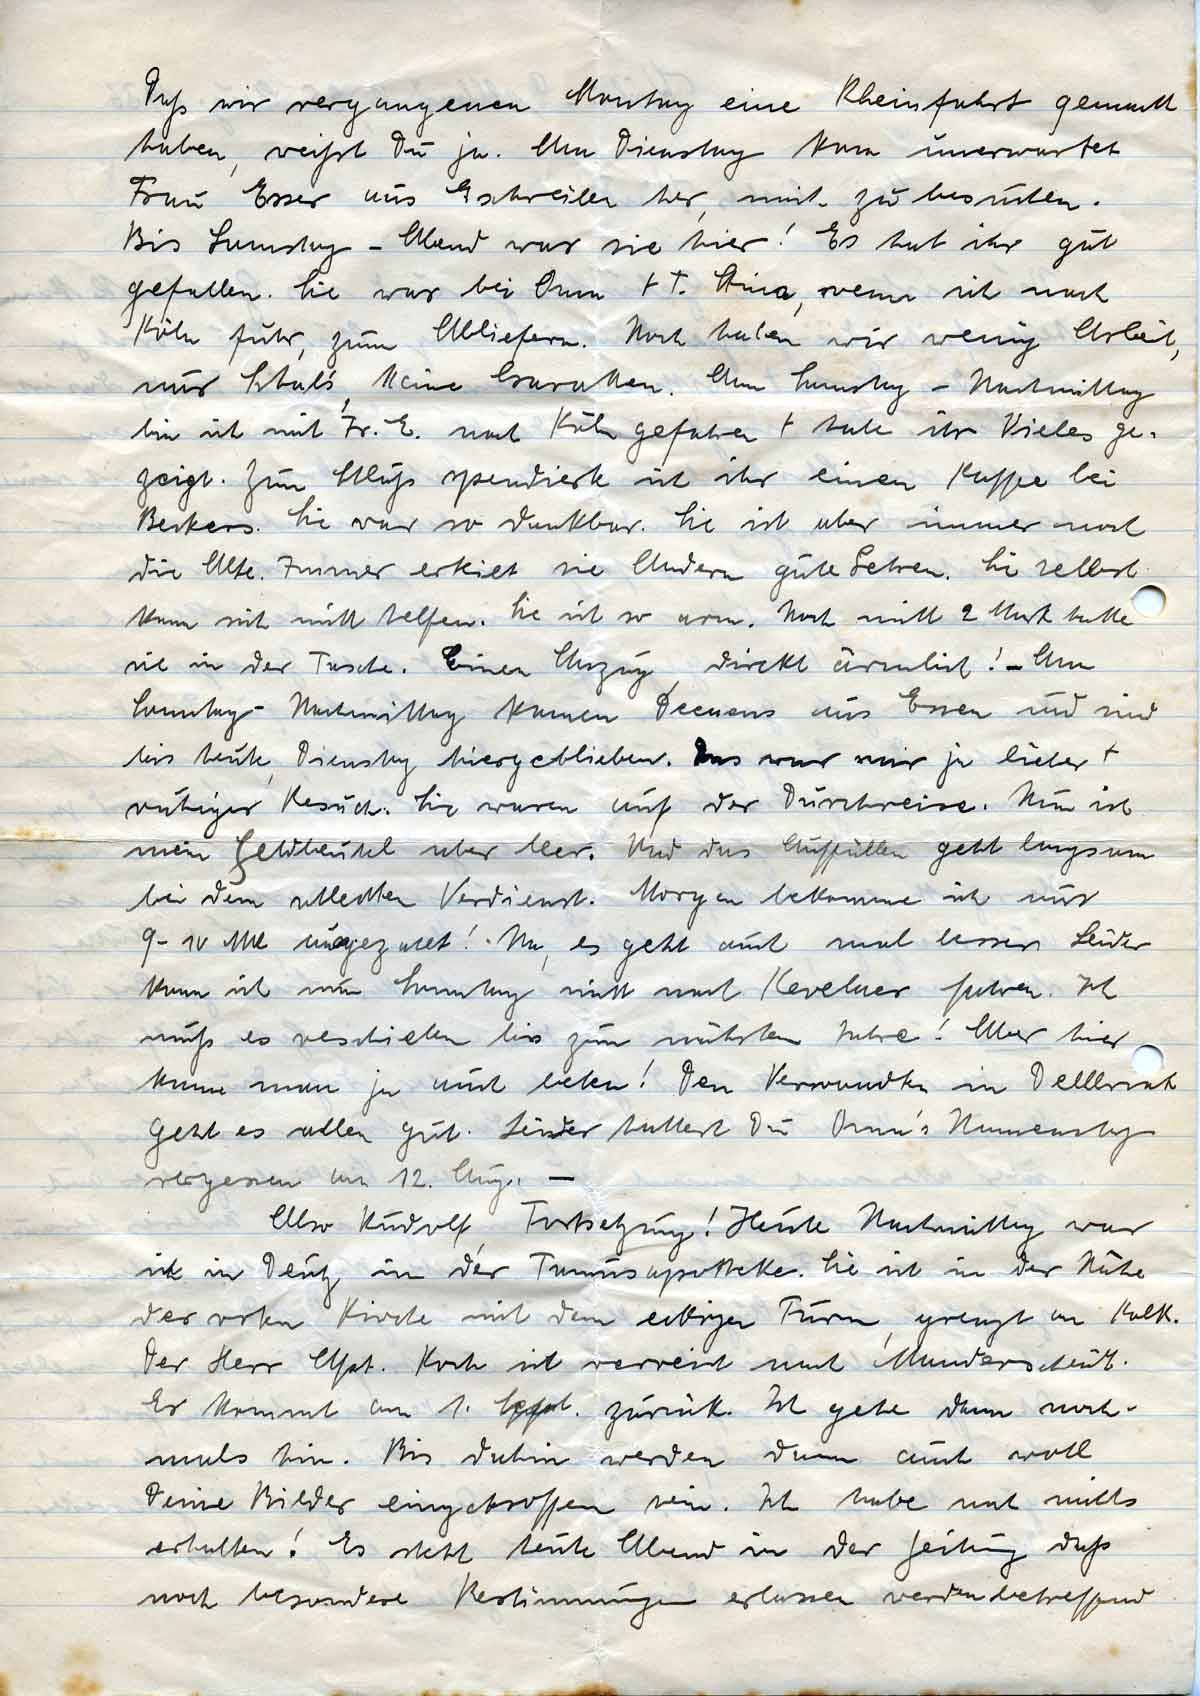 Daß wir vergangenen Montag eine Rheinfahrt gemacht
haben, weißt Du ja. Am Dienstag kam unerwartet
Frau Esser aus Eschweiler her, mich zu besuchen.
Bis Samstag - Abend war sie hier! Es hat ihr gut
gefallen. Sie war bei Oma + T. Stina, wenn ich nach
Köln fuhr, zum Abliefern. Noch haben wir wenig Arbeit,
nur Schals, keine Crawatten. Am Samstag - Nachmittag
bin ich mit Fr. E. nach Köln gefahren + habe ihr Vieles ge-
zeigt. Zum Schluß spendierte ich ihr einen Kaffee bei
Beckers. Sie war so dankbar. Sie ist aber immer noch
die Alte. Immer erteilt sie Andern gute Lehren. Sie selbst
kann sich nicht helfen. Sie ist so arm. Noch nicht 2 Mark hatte
sie in der Tasche. Einen Anzug, direkt ärmlich! - Am
Sonntag - Nachmittag kamen aus Essen und sind
bis heute, Dienstag hiergeblieben. Das war mir ja lieber +
ruhiger Besuch. Sie waren auf der Durchreise. Nun ist
mein Geldbeutel aber leer. Und das Auffüllen geht langsam
bei dem schlechten Verdienst. Morgen bekomme ich nur
9 - 10 Mk ausgezahlt! Na, es geht auch mal besser. Leider
kann ich nun Sonntag nicht nach Kevelaer fahren. Ich
muß es veschieben bis zum nächsten Jahre! Aber hier
kann man ja auch beten! Den Verwandten in Dellbrück
geht es allen gut. Leider hattest Du Oma's Namenstag
vergessen am 12. Aug. -
Also Rudolf, Fortsetzung! Heute Nachmittag war
ich in Deutz in der Taunusapotheke. Sie ist in der Nähe
der roten Kirche mit dem eckigen Turm, grenzt an Kalk.
Der Herr Apt. Koch ist verreist nach Manderscheid.
Er kommt am 1. Sept. zurück. Ich gehe dann noch-
mals hin. Bis dahin werden dann auch wohl
Deine Bilder eingetroffen sein. Ich habe noch nichts
erhalten! Es steht heute Abend in der Zeitung daß
noch besondere Bestimmungen erlassen werden betreffend